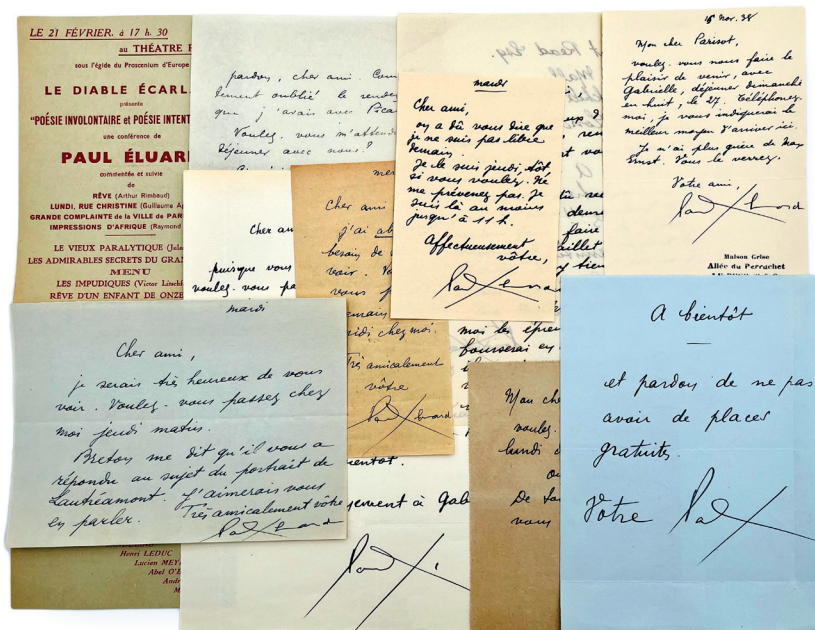 LE 21 FÉVRIER. à 17 h. 30
au THÉATRE
sous l'égide du Proscenium d'Europe
LE DIABLE ÉCARL
présente
"POÉSIE INVOLONTAIRE et POÉSIE INTENT
une conférence de
PAUL ÉLUAR
commentée et suivie
de
RÊVE (Arthur Rimbaud)
LUNDI, RUE CHRISTINE (Guillaume Ap
GRANDE COMPLAINTE de la VILLE de PAR
IMPRESSIONS D'AFRIQUE (Raymond
LE VIEUX PARALYTIQUE
LES ADMIRABLES SECRETS DU GRAN
MENU
LES IMPUDIQUES (Victor
RÊVE D'UN ENFANT DE ONZE
Henri LEDUC
Lucien MEY
Abel O'
André
M
pardon, cher ami.
tement oublié le rendez
que j'avais avec Pica
Voulez-vous m'attend
déjeuner avec nous?
Cher am
puisque vous
voulez-vous pa
mer
Cher ami
j'ai ab
besoin de
voir. Vo
vous p
emain
midi chez moi.
Très amicalement
vôtre
mardi
Cher ami,
on a dû vous dire que
je ne suis pas libre
demain.
Je le suis jeudi, tôt
si vous voulez. Ne
me prévenez pas. Je
suis là au moins
jusqu'à 11 h.
Affectueusement
vôtre,
Paul Eluard
faire
juillet
bien
moi les épreu
en
15 Nov. 38
Mon cher Parisot,
voulez-vous nous faire le
plaisir de venir, avec
Gabrielle, déjeuner dimanche
en huit, le 27. Téléphonez-
moi, je vous indiquerai le
meilleur moyen d'arriver ici.
Je n'ai plus guère de Max
Ernst. Vous le verrez.
Votre ami,
Paul Eluard
Maison Grise
Allée du Perrachet
mardi
Cher ami,
je serais très heureux de vous
voir. Voulez-vous passer chez
moi jeudi matin.
Breton me dit qu'il vous a
répondu au sujet du portrait de
Lautréamont. J'aimerais vous
en parler. Très amicalement vôtre
Paul Eluard
bientot.
à Gab
Mon che
voulez-
lundi
ou
De
vous
A bientôt
et pardon de ne pas
avoir de places
gratuites.
Vôtre Paul